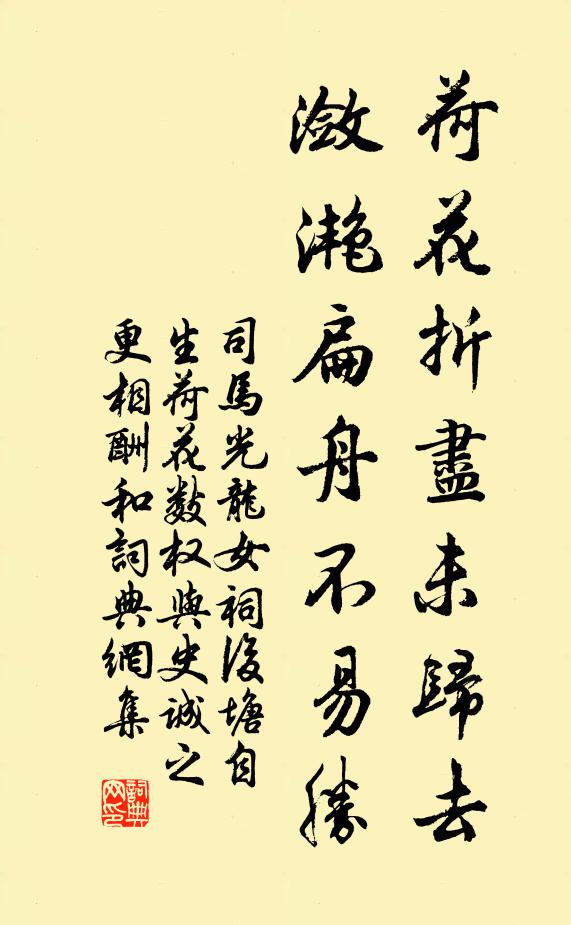 荷花折盡未歸去
瀲灧扁舟不易勝
司馬光龍女祠後塘自
生荷花数枝與史誠之
更相酬和詞典網集
詞典網印